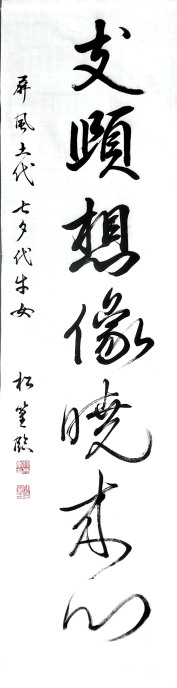 支頤想像曉来心
屏風土代 七夕代牛女 松 臨